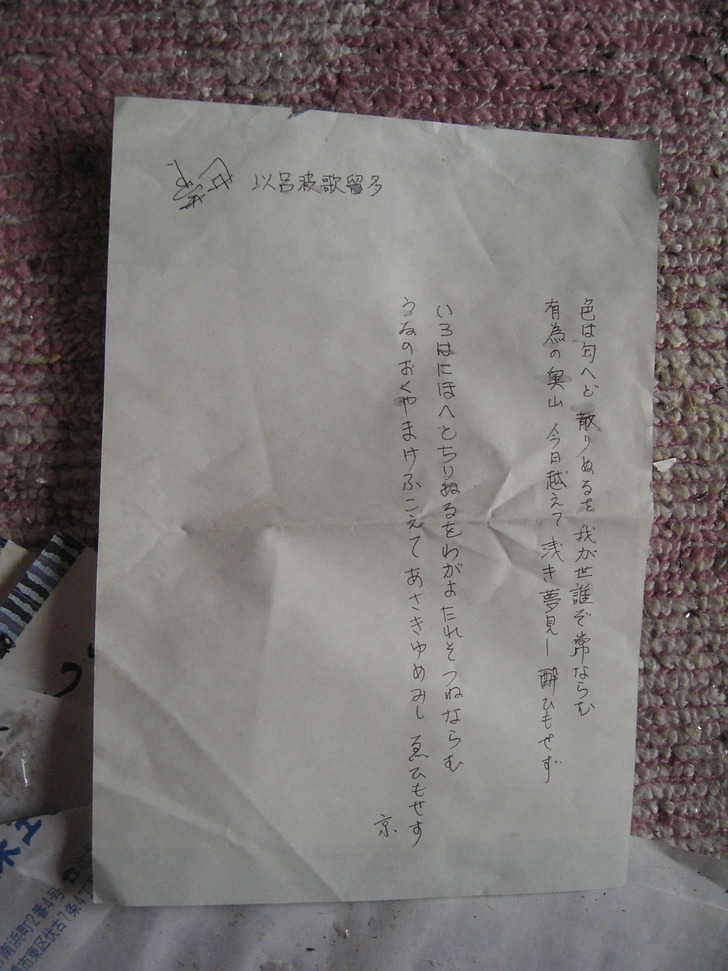 以呂波歌留多
色は匂へど 散りぬるを 我が世誰ぞ 常ならむ
有為の奥山 今日越えて 浅き夢見し 酔ひもせず
いろはにほへとちりぬるをわがよたれそつねならむ
うゐのおくやまけふこえてあさきゆめみし ゑひもせす
京
南浜町2番4号
市東区伏古7条4丁